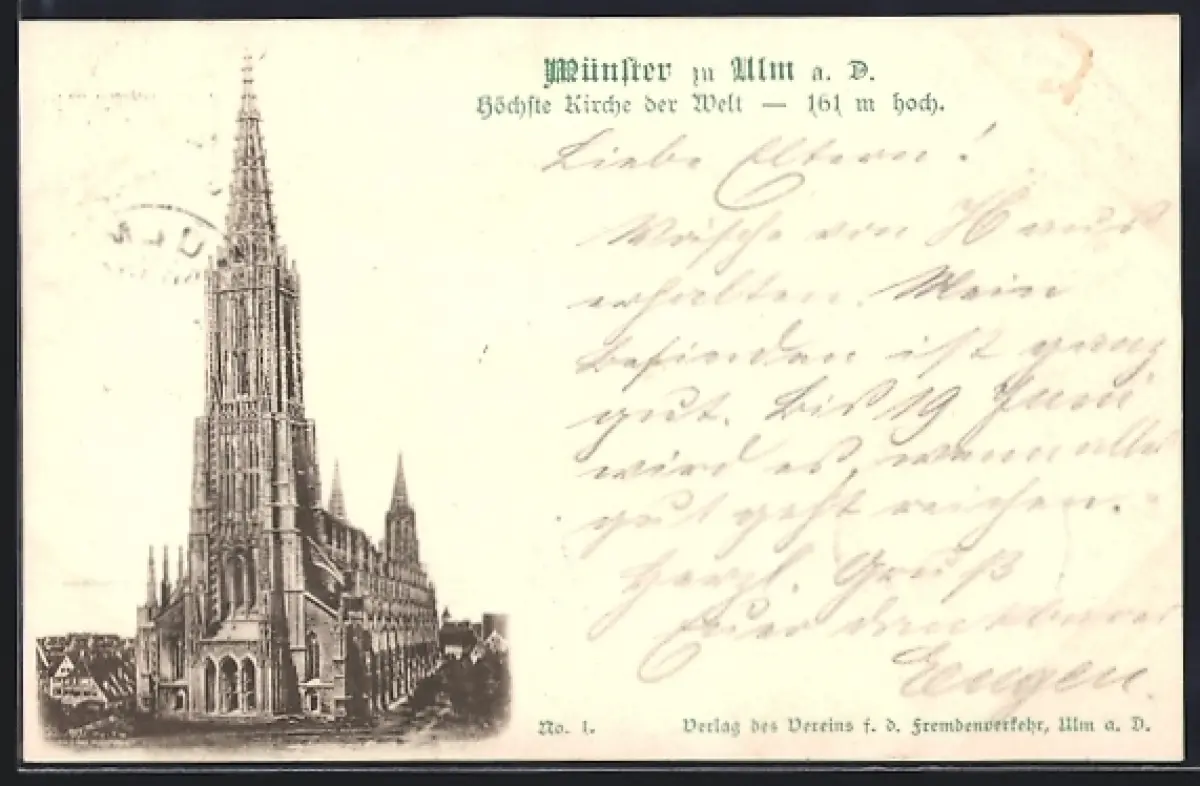 Münster zu Ulm a. D.
Höchste Kirche der Welt — 161 m hoch.
Liebe Eltern!
Wäsche von Haus
erhalten. Mein
Befinden ist ganz
gut. Bis 19 Juni
wird es, wenn alles
gut geht reichen.
Herzl. Gruß
Euer dankbarer
Eugen.
No. 1.
Verlag des Vereins f. d. Fremdenverkehr, Ulm a. D.